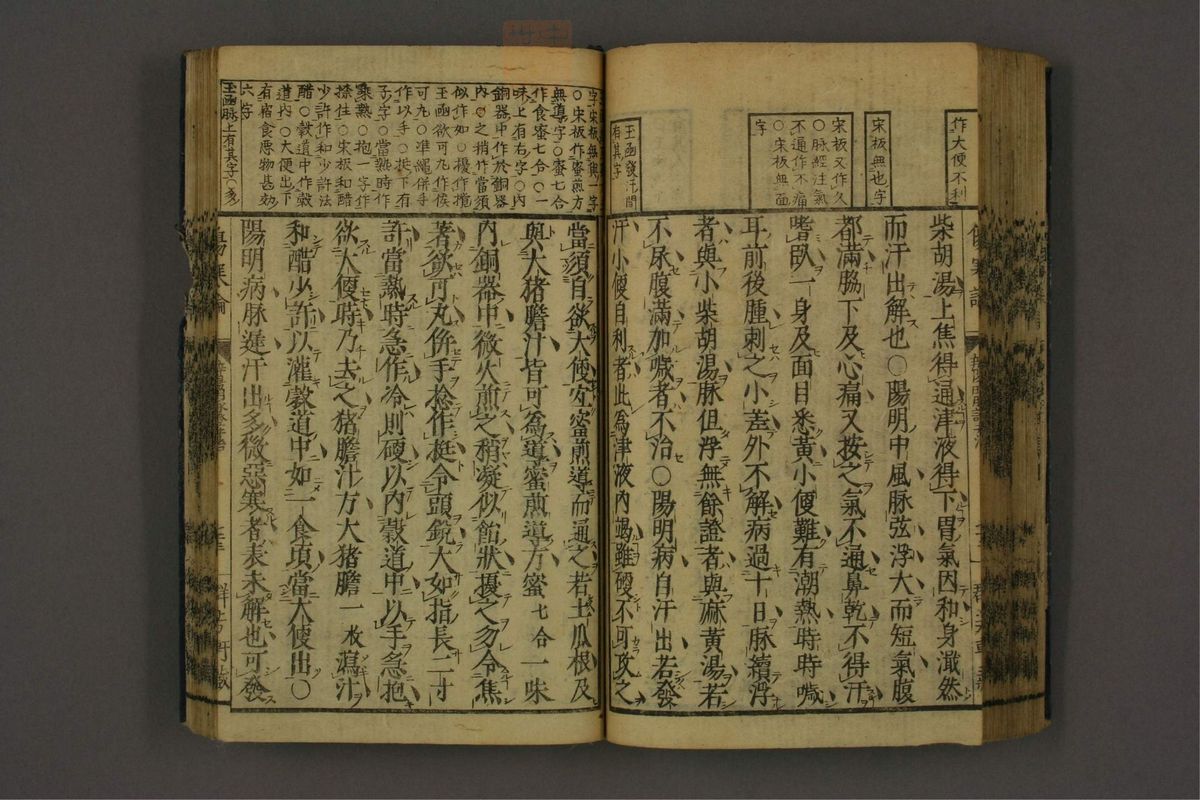 作大便不利
宋板無也字
宋板又作久
○脉經注氣
不通作不痛
○宋板無面
字
玉函發汗間
有其字
柴胡湯上焦得通津液得下胃氣因和身濈然
而汗出解也○陽明中風脉弦浮大而短氣腹
都滿脇下及心痛又按之氣不通鼻乾不得汗
嗜臥一身及面目悉黃小便難有潮熱時時噦
耳前後腫刺之小差外不解病過十日脉續浮
者與小柴胡湯脉但浮無餘證者與麻黃湯若
不尿腹滿加噦者不治○陽明病自汗出若發
汗小便自利者此為津液內竭雖硬不可攻之
字宋板無與一字
○宋板作蜜煎方
無導字○蜜七合
作食蜜七合○一
味上有右字○內
銅器中作於銅器
內○之稍作當須
似作如○擾作攪
玉函欲可丸作候
可丸○準繩併手
作以手○挺下有
子字○當熱時作
乘熱○抱一字作
捺住○宋板和醋
少許作和少許法
醋○穀道中作穀
道內○大便出下
有宿食惡物甚効
六字
玉函脉上有其字○多
當須自欲大便宜蜜煎導而通之若土瓜根及
與大猪膽汁皆可為導蜜煎導方蜜七合一味
內銅器中微火煎之稍凝似飴狀擾之勿令焦
著欲可丸併手捻作挺令頭銳大如指長二寸
許當熱時急作冷則硬以內穀道中以手急抱
欲大便時乃去之猪膽汁方大猪膽一枚瀉汁
和醋少許以灌穀道中如一食頃當大便出○
陽明病脉遲汗出多微惡寒者表未解也可發
傷寒論